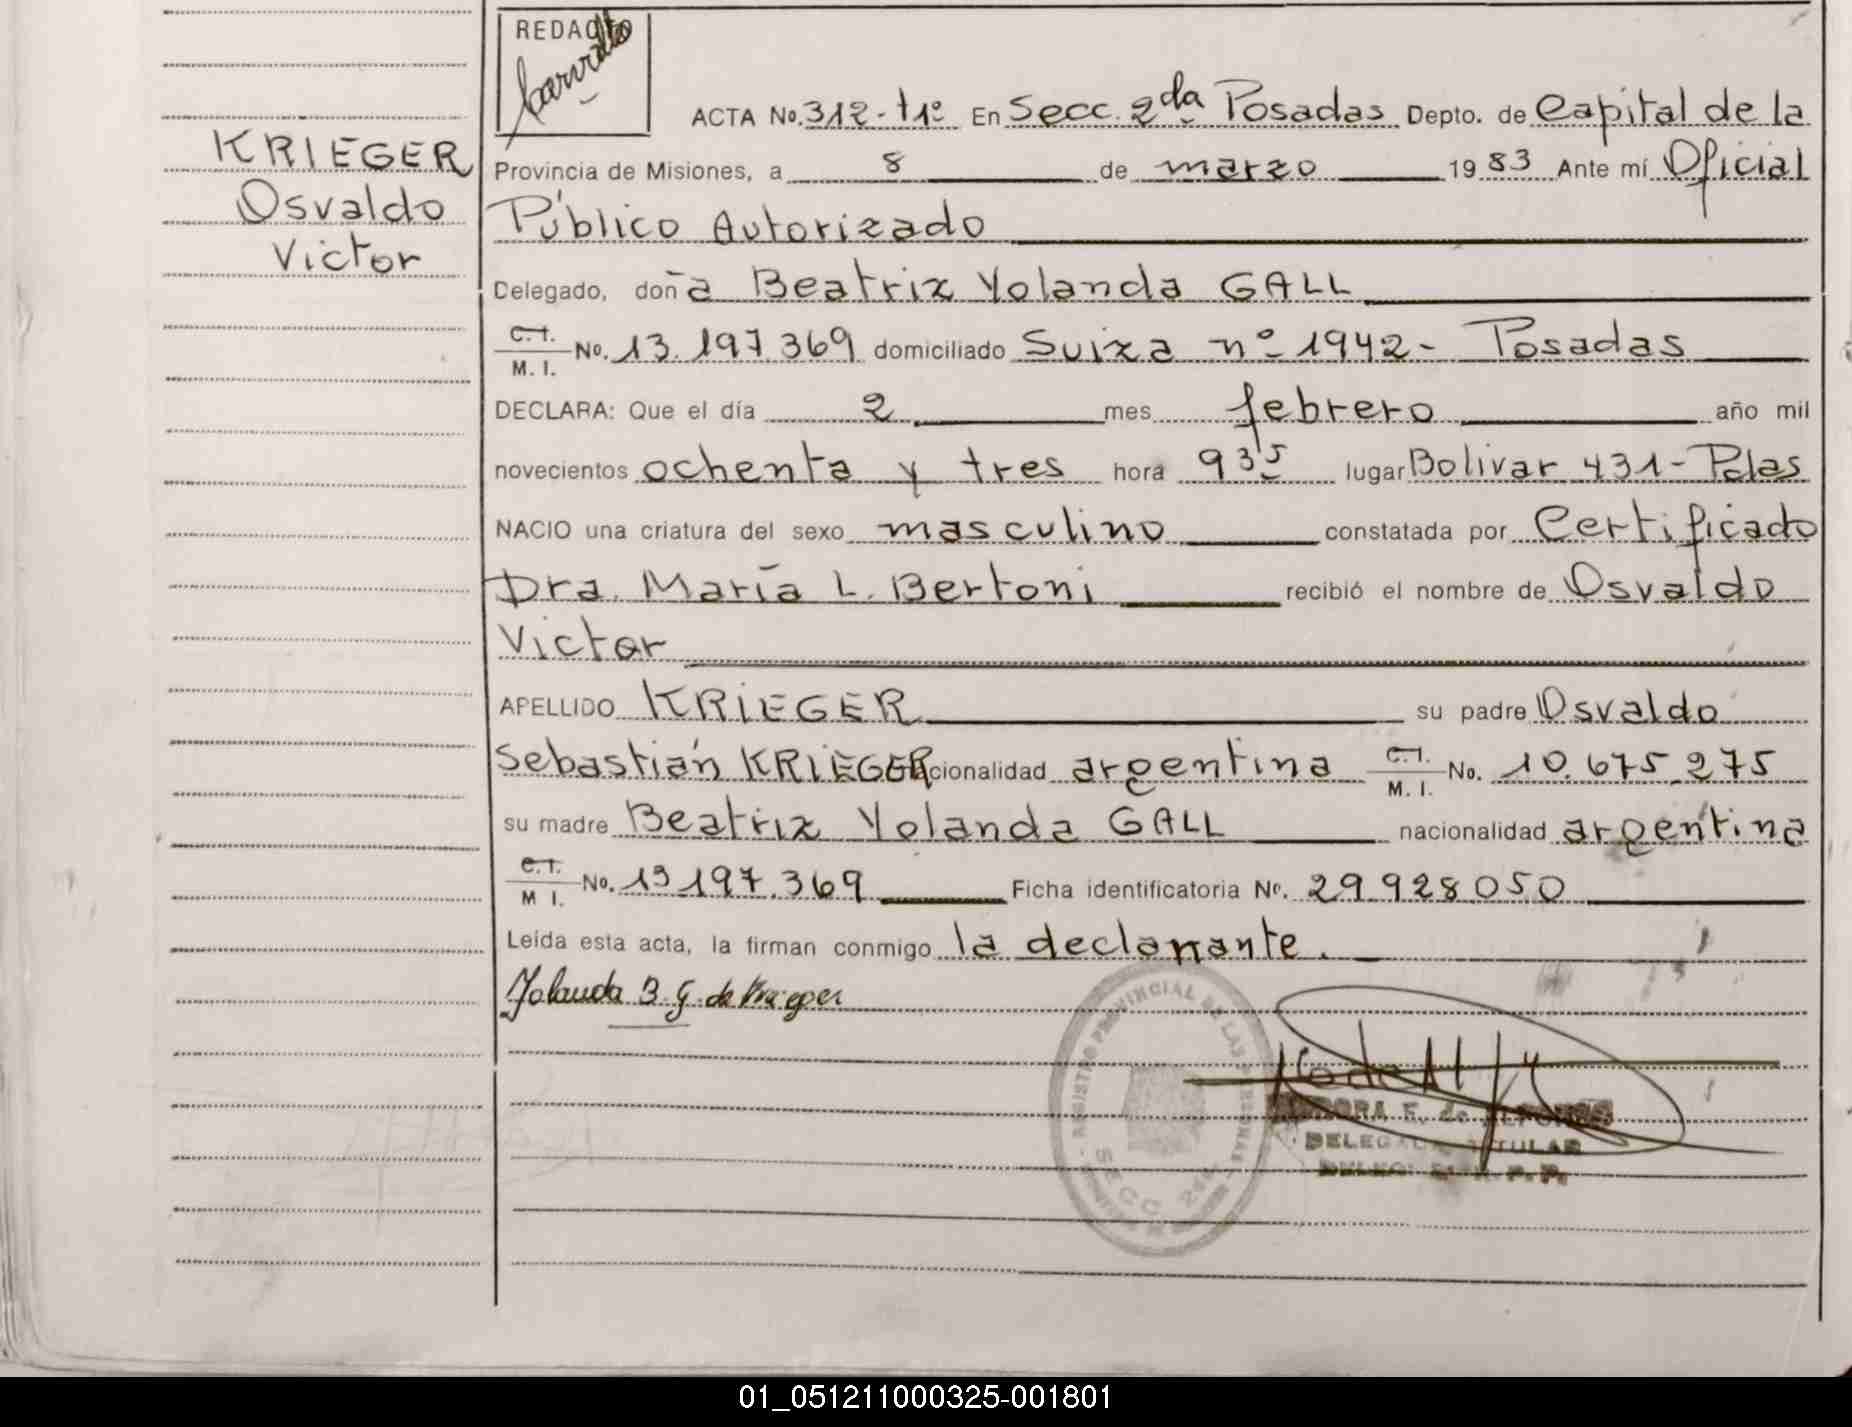 REDACTO
ACTA No. 312-t1º En Secc. 2da Posadas Depto. de Capital de la
KRIEGER
Osvaldo
Victor
Provincia de Misiones, a 8 de marzo 1983 Ante mí Oficial
Público Autorizado
Delegado, doña Beatriz Yolanda GALL
C.I. M. I. No. 13.197.369 domiciliado Suiza nº 1942- Posadas
DECLARA: Que el día 2 mes febrero año mil
novecientos ochenta y tres hora 9 35 lugar Bolivar 431-Pdas
NACIO una criatura del sexo masculino constatada por Certificado
Dra. María L. Bertoni recibió el nombre de Osvaldo
Victor
APELLIDO KRIEGER su padre Osvaldo
Sebastián KRIEGER nacionalidad argentina C.I. M. I. No. 10.675.275
su madre Beatriz Yolanda GALL nacionalidad argentina
C.I. M I. No. 13197.369 Ficha identificatoria Nº. 29.928050
Leída esta acta, la firman conmigo la declarante.
Yolanda B. G. de Krieger
REGISTRO PROVINCIAL DE LAS PERSONAS
SECC. 2da
DELEGADA TITULAR
01_051211000325-001801